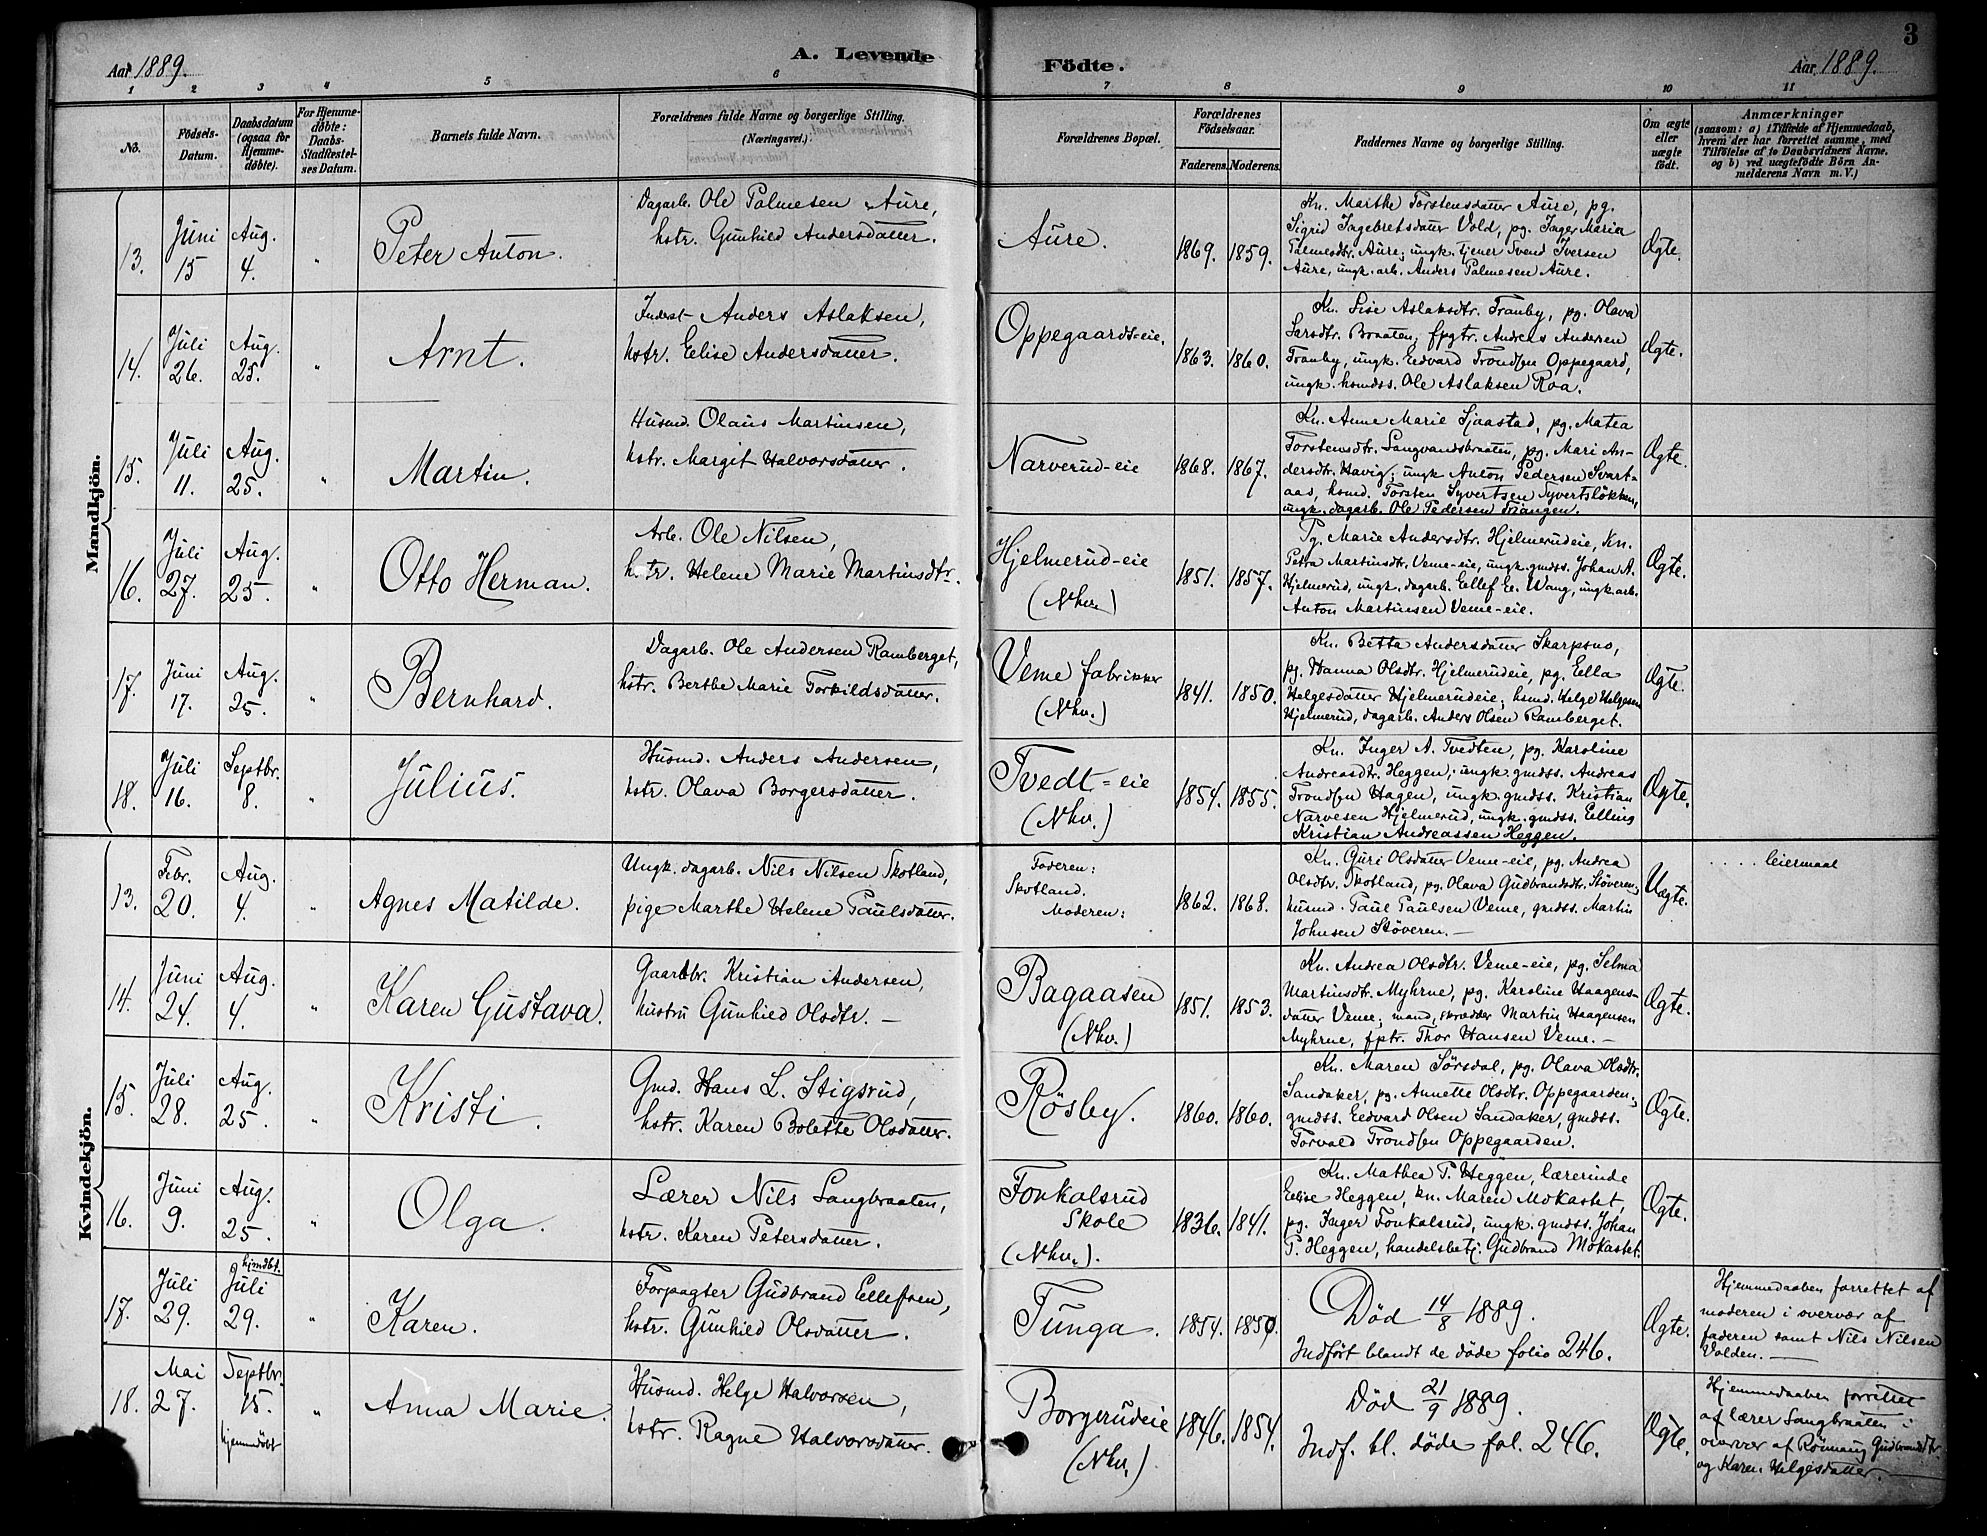 Aar 1889.
A. Levende Födte.
3
Aar 1889.
1 2 3 4 5 6 7 8 9 10 11
No.
Födsels-Datum.
Daabsdatum (ogsaa for Hjemme-döbte).
For Hjemme-döbte: Daabs-Stadfæstel-ses Datum.
Barnets fulde Navn.
Forældrenes fulde Navne og borgerlige Stilling.
(Næringsvei.)
Forældrenes Bopæl.
Forældrenes Födselsaar.
Faderens. Moderens.
Faddernes Navne og borgerlige Stilling.
Om ægte eller uægte födt.
Anmærkninger
(saasom: a) i Tilfælde af Hjemmedaab,
hvem der har forrettet samme, med
Tilföielse af to Daabsvidners Navne,
og b) ved uægtefödte Börn An-
melderens Navn m. V.)
Mandkjön.
13.
Juni 15
Aug. 4.
"
Peter Anton.
Dagarb. Ole Palmesen Aure,
hstr. Gunhild Andersdatter.
Aure.
1869. 1859.
Kn. Marthe Torstensdatter Aure, pg.
Sigrid Ingebretsdatter Vold, pg. Inger Maria
Palmesdtr. Aure; ungk. tjener Svend Iversen
Aure, ungk. arb. Anders Palmesen Aure.
Ægte.
14.
Juli 26.
Aug. 25.
"
Arnt.
Inderst Anders Aslaksen,
hstr. Eelise Andersdatter.
Oppegaardseie.
1863. 1860.
Kn. Lise Aslaksdtr. Tranby, pg. Olava
Larsdtr. Braaten; fpgtr. Andreas Andersen
Tranby, ungk. Eedvard Trondsen Oppegaard,
ungk. hsmdss. Ole Aslaksen Roa.
Ægte.
15.
Juli 11.
Aug. 25.
"
Martin.
Husmd. Olaus Martinsen,
hstr. Margit Halvorsdatter.
Narverud-eie
1868. 1867.
Kn. Anne Marie Sjaastad, pg. Matea
Torstensdtr. Langvandsbraaten, pg. Mari An-
dersdtr. Havig; ungk Anton Pedersen Svart-
aas, hsmd. Torsten Syvertsen Syvertsløkken,
ungk. dagarb. Ole Pedersen Triangen.
Ægte.
16.
Juli 27.
Aug. 25.
"
Otto Herman.
Arb. Ole Nilsen,
hstr. Helene Marie Martinsdtr.
Hjelmerud-eie
(Nhv.)
1851. 1857.
Pg. Marie Andersdtr. Hjelmerudeie, Kn.
Petra Martinsdtr. Veme-eie, ungk. gmdss. Johan A.
Hjelmerud, ungk. dagarb. Eellef Ee. Wang, ungk. arb.
Anton Martinsen Veme-eie.
Ægte.
17.
Juni 17.
Aug. 25.
"
Bernhard.
Dagarb. Ole Andersen Ramberget,
hstr. Berthe Marie Torkildsdatter.
Veme fabrikker
(Nhv.)
1841. 1850.
Kn. Betta Andersdatter Skarpsno,
pg. Hanna Olsdtr. Hjelmerudeie, pg. Ella
Helgesdatter Hjelmerudeie; hsmd. Helge Helgesen
Hjelmerud, dagarb. Anders Olsen Ramberget.
Ægte.
18.
Juli 16.
Septbr. 8.
"
Julius.
Husmd. Anders Andersen,
hstr. Olava Borgersdatter.
Tvedt-eie
(Nhv.)
1854. 1855.
Kn. Inger A. Tvedten, pg. Karoline
Andreasdtr. Heggen; ungk. gmdss. Andreas
Trondsen Hagen, ungk. gmdss. Kristian
Narvesen Hjelmerud, ungk. gmdss. Eelling
Kristian Andreassen Heggen.
Ægte.
Kvindekjön.
13.
Febr. 20.
Aug. 4.
"
Agnes Matilde.
Ungk. dagarb. Nils Nilsen Skotland,
pige Marthe Helene Paulsdatter.
Faderen:
Skotland.
Moderen:
1862. 1868.
Kn. Guri Olsdatter Veme-eie, pg. Andrea
Olsdtr. Skotland, pg. Olava Gudbrandsdtr. Støveren;
husmd. Paul Paulsen Veme, gmdss. Martin
Johnsen Støveren. —
Uægte.
..... leiermaal
14.
Juni 24.
Aug. 4.
"
Karen Gustava.
Gaardbr. Kristian Andersen,
hustru Gunhild Olsdtr. —
Bagaasen
(Nhv.)
1851. 1853.
Kn. Andrea Olsdtr. Veme-eie, pg. Selma
Martinsdtr. Myhrne, pg. Karoline Haagens-
datter Veme; mand, skrædder Martin Haagensen
Myhrne, fptr. Thor Hansen Veme. —
Ægte.
15.
Juli 28.
Aug. 25.
"
Kristi.
Gmd. Hans L. Stigsrud,
hstr. Karen Bolette Olsdatter.
Røsby.
1860. 1860.
Kn. Maren Sørsdal, pg. Olava Olsdtr.
Sandaker, pg. Annette Olsdtr. Oppegaarden;
gmdss. Eedvard Olsen Sandaker, gmdss.
Torvald Trondsen Oppegaarden.
Ægte.
16.
Juni 9.
Aug. 25.
"
Olga.
Lærer Nils Langbraaten,
hstr. Karen Petersdatter.
Fonkalsrud
Skole
(Nhv.).
1836. 1841.
Kn. Mathea P. Heggen, lærerinde
Eelise Heggen, kn. Maren Mokastet,
pg. Inger Fonkalsrud, ungk. gmdss. Johan
P. Heggen, handelsbetj. Gudbrand Mokastet.
Ægte.
17.
Juli 29.
hjmdbt.
Juli 29.
"
Karen.
Forpagter Gudbrand Ellefsen,
hstr. Gunhild Olsdatter.
Tunga.
1854. 1850.
Død 14/8 1889.
Indført blandt de døde folio 246.
Ægte.
Hjemmedaaben forrettet af
moderen i overvær af
faderen samt Nils Nilsen
Volden. —
18.
Mai 27.
Septbr. 15.
hjemmdøbt
"
Anna Marie.
Husmd. Helge Halvorsen,
hstr. Ragne Halvorsdatter.
Borgerudeie
(Nhv.)
1846. 1854.
Død 21/9 1889.
Indf. bl. døde fol. 246.
Ægte.
Hjemmedaaben forrettet
af lærer Langbraaten i
overvær af Rønnaug Gudbrandsdtr.
og Karen Helgesdatter.